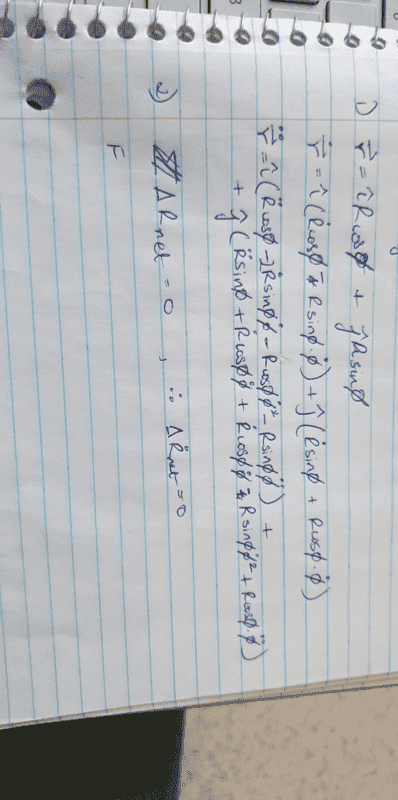 1) r⃗ = î R cosφ + ĵ R sinφ
ṙ⃗ = î (Ṙ cosφ - R sinφ·φ̇) + ĵ (Ṙ sinφ + R cosφ·φ̇)
r̈⃗ = î (R̈ cosφ - 2Ṙ sinφφ̇ - R cosφφ̇² - R sinφφ̈) +
+ ĵ (R̈ sinφ + Ṙ cosφφ̇ + Ṙ cosφφ̇ - R sinφφ̇² + R cosφ·φ̈)
2) ΔR net = 0 , ∴ ΔR̈ net = 0
F